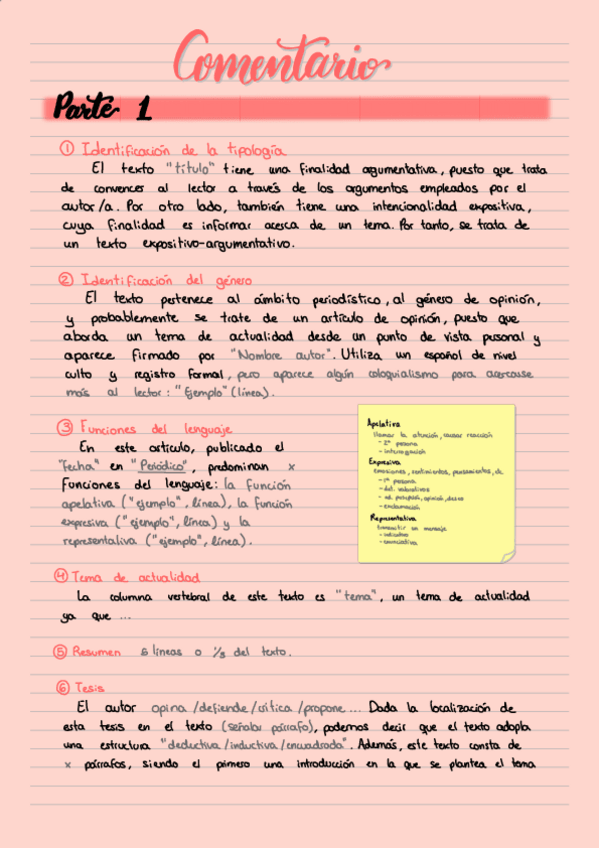 Comentario
Parte 1
① Identificación de la tipología
El texto "título" tiene una finalidad argumentativa, puesto que trata
de convencer al lector a través de los argumentos empleados por el
autor/a. Por otro lado, también tiene una intencionalidad expositiva,
cuya finalidad es informar acerca de un tema. Por tanto, se trata de
un texto expositivo-argumentativo.
② Identificación del género
El texto pertenece al ámbito periodístico, al género de opinión,
y probablemente se trate de un artículo de opinión, puesto que
aborda un tema de actualidad desde un punto de vista personal y
aparece firmado por "Nombre autor". Utiliza un español de nivel
culto y registro formal, pero aparece algún coloquialismo para acercarse
más al lector: "Ejemplo" (línea).
③ Funciones del lenguaje
En este artículo, publicado el
"Fecha" en "Periódico", predominan x
Funciones del lenguaje: la función
apelativa ("ejemplo", línea), la función
expresiva ("ejemplo", línea) y la
representativa ("ejemplo", línea).
Apelativa
llamar la atención, causar reacción
- 2ª persona
- interrogación
Expresiva
emociones, sentimientos, pensamientos, de
- 1ª persona
- sust. valorativos
- ad. percepció, opinión, deseo
- exclamación
Representativa
transmitir un mensaje
- indicativo
- enunciativa
④ Tema de actualidad
La columna vertebral de este texto es "tema", un tema de actualidad
ya que ...
⑤ Resumen 5 líneas o 1/3 del texto.
⑥ Tesis
El autor opina/defiende/critica/propone ... Dada la localización de
esta tesis en el texto (señalar párrafo), podemos decir que el texto adopta
una estructura "deductiva/inductiva/encuadrada". Además, este texto consta de
x párrafos, siendo el primero una introducción en la que se plantea el tema